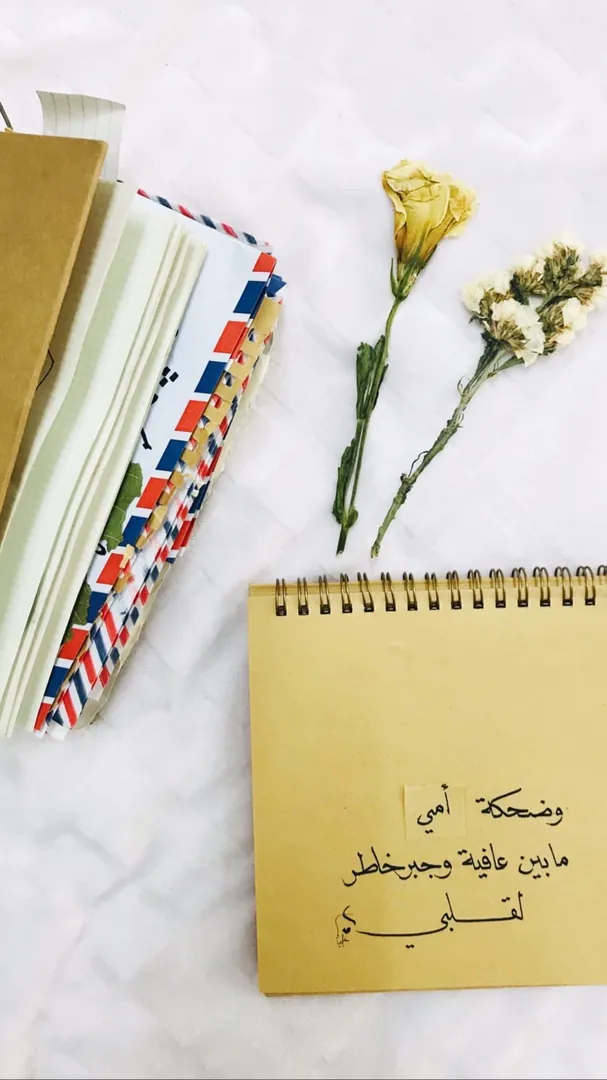 وضحكة أمي
مابين عافية وجبرخاطر
لقلبي